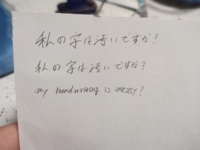 私の字は汚いですか?
私の字は汚いですか?
my handwriting is messy?